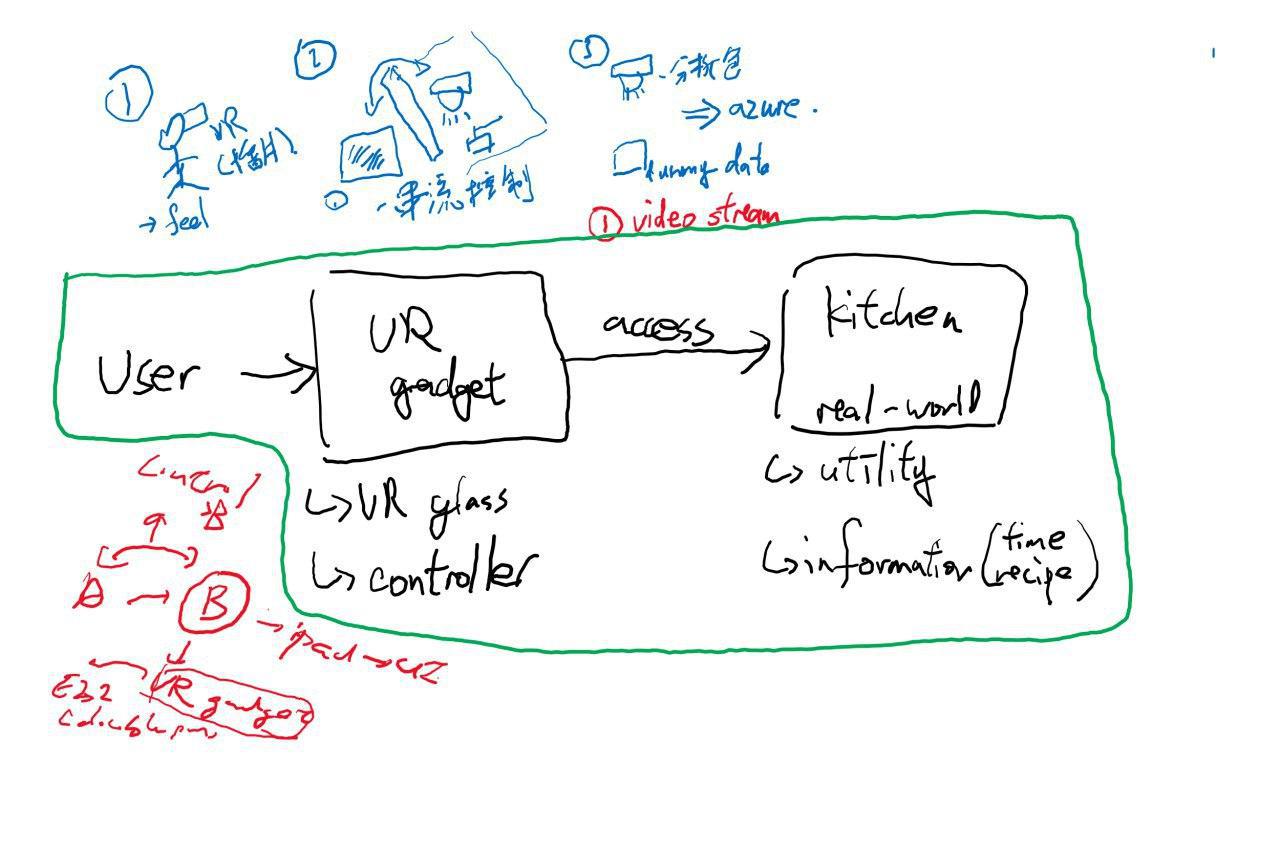 ①
VR
(播片)
→ feel
②
串流控制
③
分析包
⇒ azure.
dummy data
① video stream
User
VR
gadget
access
kitchen
real-world
↳ VR glass
↳ controller
↳ utility
↳ information (time
recipe)
control
A → B
→ ipad →
VR gadget